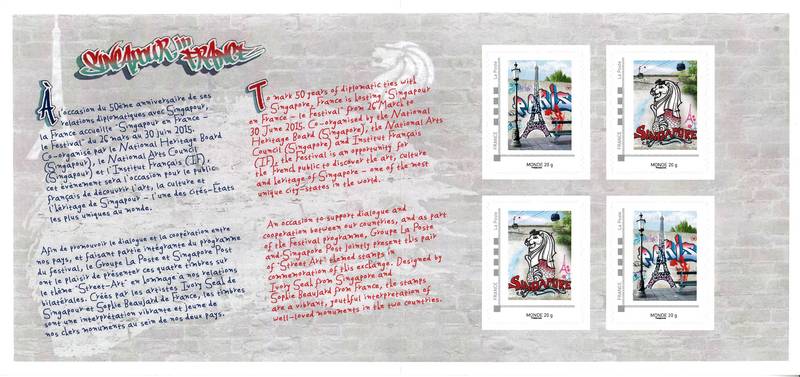 SINGAPOUR in FRANCE
À l'occasion du 50ème anniversaire de ses
relations diplomatiques avec Singapour,
la France accueille "Singapour en France –
le Festival" du 26 mars au 30 juin 2015.
Co-organisé par le National Heritage Board
(Singapour), le National Arts Council
(Singapour) et l'Institut Français (IF),
cet événement sera l'occasion pour le public
français de découvrir l'art, la culture et
l'héritage de Singapour – l'une des cités-États
les plus uniques au monde.
Afin de promouvoir le dialogue et la coopération entre
nos pays, et faisant partie intégrante du programme
du festival, le Groupe La Poste et Singapore Post
ont le plaisir de présenter ces quatre timbres de
thème "Street-Art" en hommage à nos relations
bilatérales. Créés par les artistes Ivory Seah de
Singapour et Sophie Beaujard de France, les timbres
sont une interprétation vibrante et jeune de
nos chers monuments au sein de nos deux pays.
To mark 50 years of diplomatic ties with
Singapore, France is hosting "Singapour
en France – le Festival" from 26 March to
30 June 2015. Co-organised by the National
Heritage Board (Singapore), the National Arts
Council (Singapore) and Institut Français
(IF), the festival is an opportunity for
the French public to discover the art, culture
and heritage of Singapore – one of the most
unique city-states in the world.
An occasion to support dialogue and
cooperation between our countries, and as part
of the festival programme, Groupe La Poste
and Singapore Post jointly present this pair
of "Street Art" themed stamps in
commemoration of this exchange. Designed by
Ivory Seah from Singapore and
Sophie Beaujard from France, the stamps
are a vibrant, youthful interpretation of
well-loved monuments in the two countries.
La Poste
FRANCE
PARIS
MONDE 20 g
La Poste
FRANCE
SINGAPORE
MONDE 20 g
La Poste
FRANCE
SINGAPORE
MONDE 20 g
La Poste
FRANCE
PARIS
MONDE 20 g